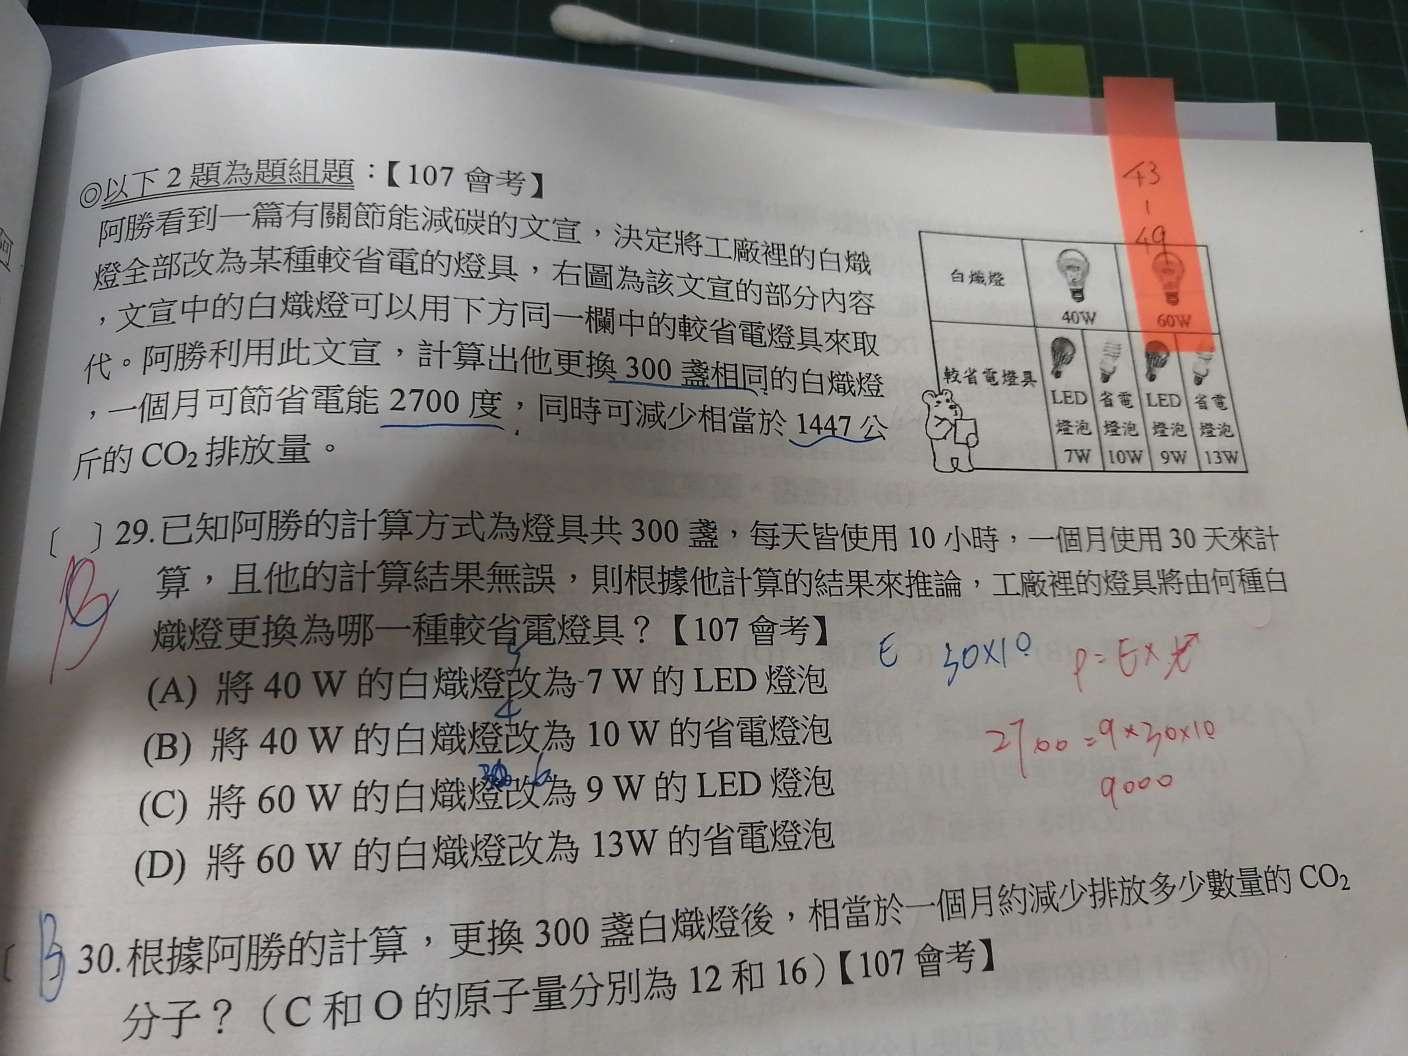 43
|
49
◎以下 2 題為題組題：【107 會考】
阿勝看到一篇有關節能減碳的文宣，決定將工廠裡的白熾
燈全部改為某種較省電的燈具，右圖為該文宣的部分內容
，文宣中的白熾燈可以用下方同一欄中的較省電燈具來取
代。阿勝利用此文宣，計算出他更換 300 盞相同的白熾燈
，一個月可節省電能 2700 度，同時可減少相當於 1447 公
斤的 CO₂ 排放量。
白熾燈
40W
60W
較省電燈具
LED 省電 LED 省電
燈泡 燈泡 燈泡 燈泡
7W 10W 9W 13W
〔 〕29.已知阿勝的計算方式為燈具共 300 盞，每天皆使用 10 小時，一個月使用 30 天來計
B
算，且他的計算結果無誤，則根據他計算的結果來推論，工廠裡的燈具將由何種白
熾燈更換為哪一種較省電燈具？【107 會考】
E 30×10 P=E×t
(A) 將 40 W 的白熾燈改為 7 W 的 LED 燈泡
(B) 將 40 W 的白熾燈改為 10 W 的省電燈泡
2700=9×30×10
9000
(C) 將 60 W 的白熾燈改為 9 W 的 LED 燈泡
(D) 將 60 W 的白熾燈改為 13W 的省電燈泡
B
30.根據阿勝的計算，更換 300 盞白熾燈後，相當於一個月約減少排放多少數量的 CO₂
分子？（C 和 O 的原子量分別為 12 和 16）【107 會考】